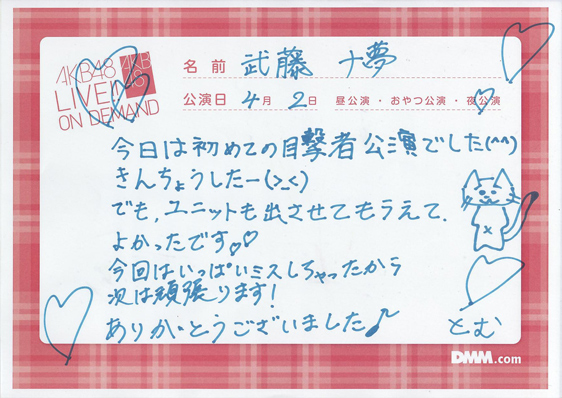 AKB48
LIVE!!
ON DEMAND
AKB
48
名前 武藤 十夢
公演日 4月 2日 昼公演・おやつ公演・夜公演
今日は初めての目撃者公演でした(^^)
きんちょうしたー(>_<)
でも,ユニットも出させてもらえて、
よかったです♡♡
今回はいっぱいミスしちゃったから
次は頑張ります!
ありがとうございました♪
とむ
DMM.com